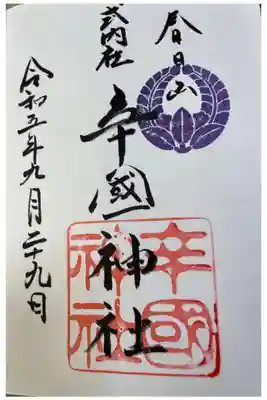 春日山
式内社
辛國神社
令和五年九月二十九日
辛國
神社